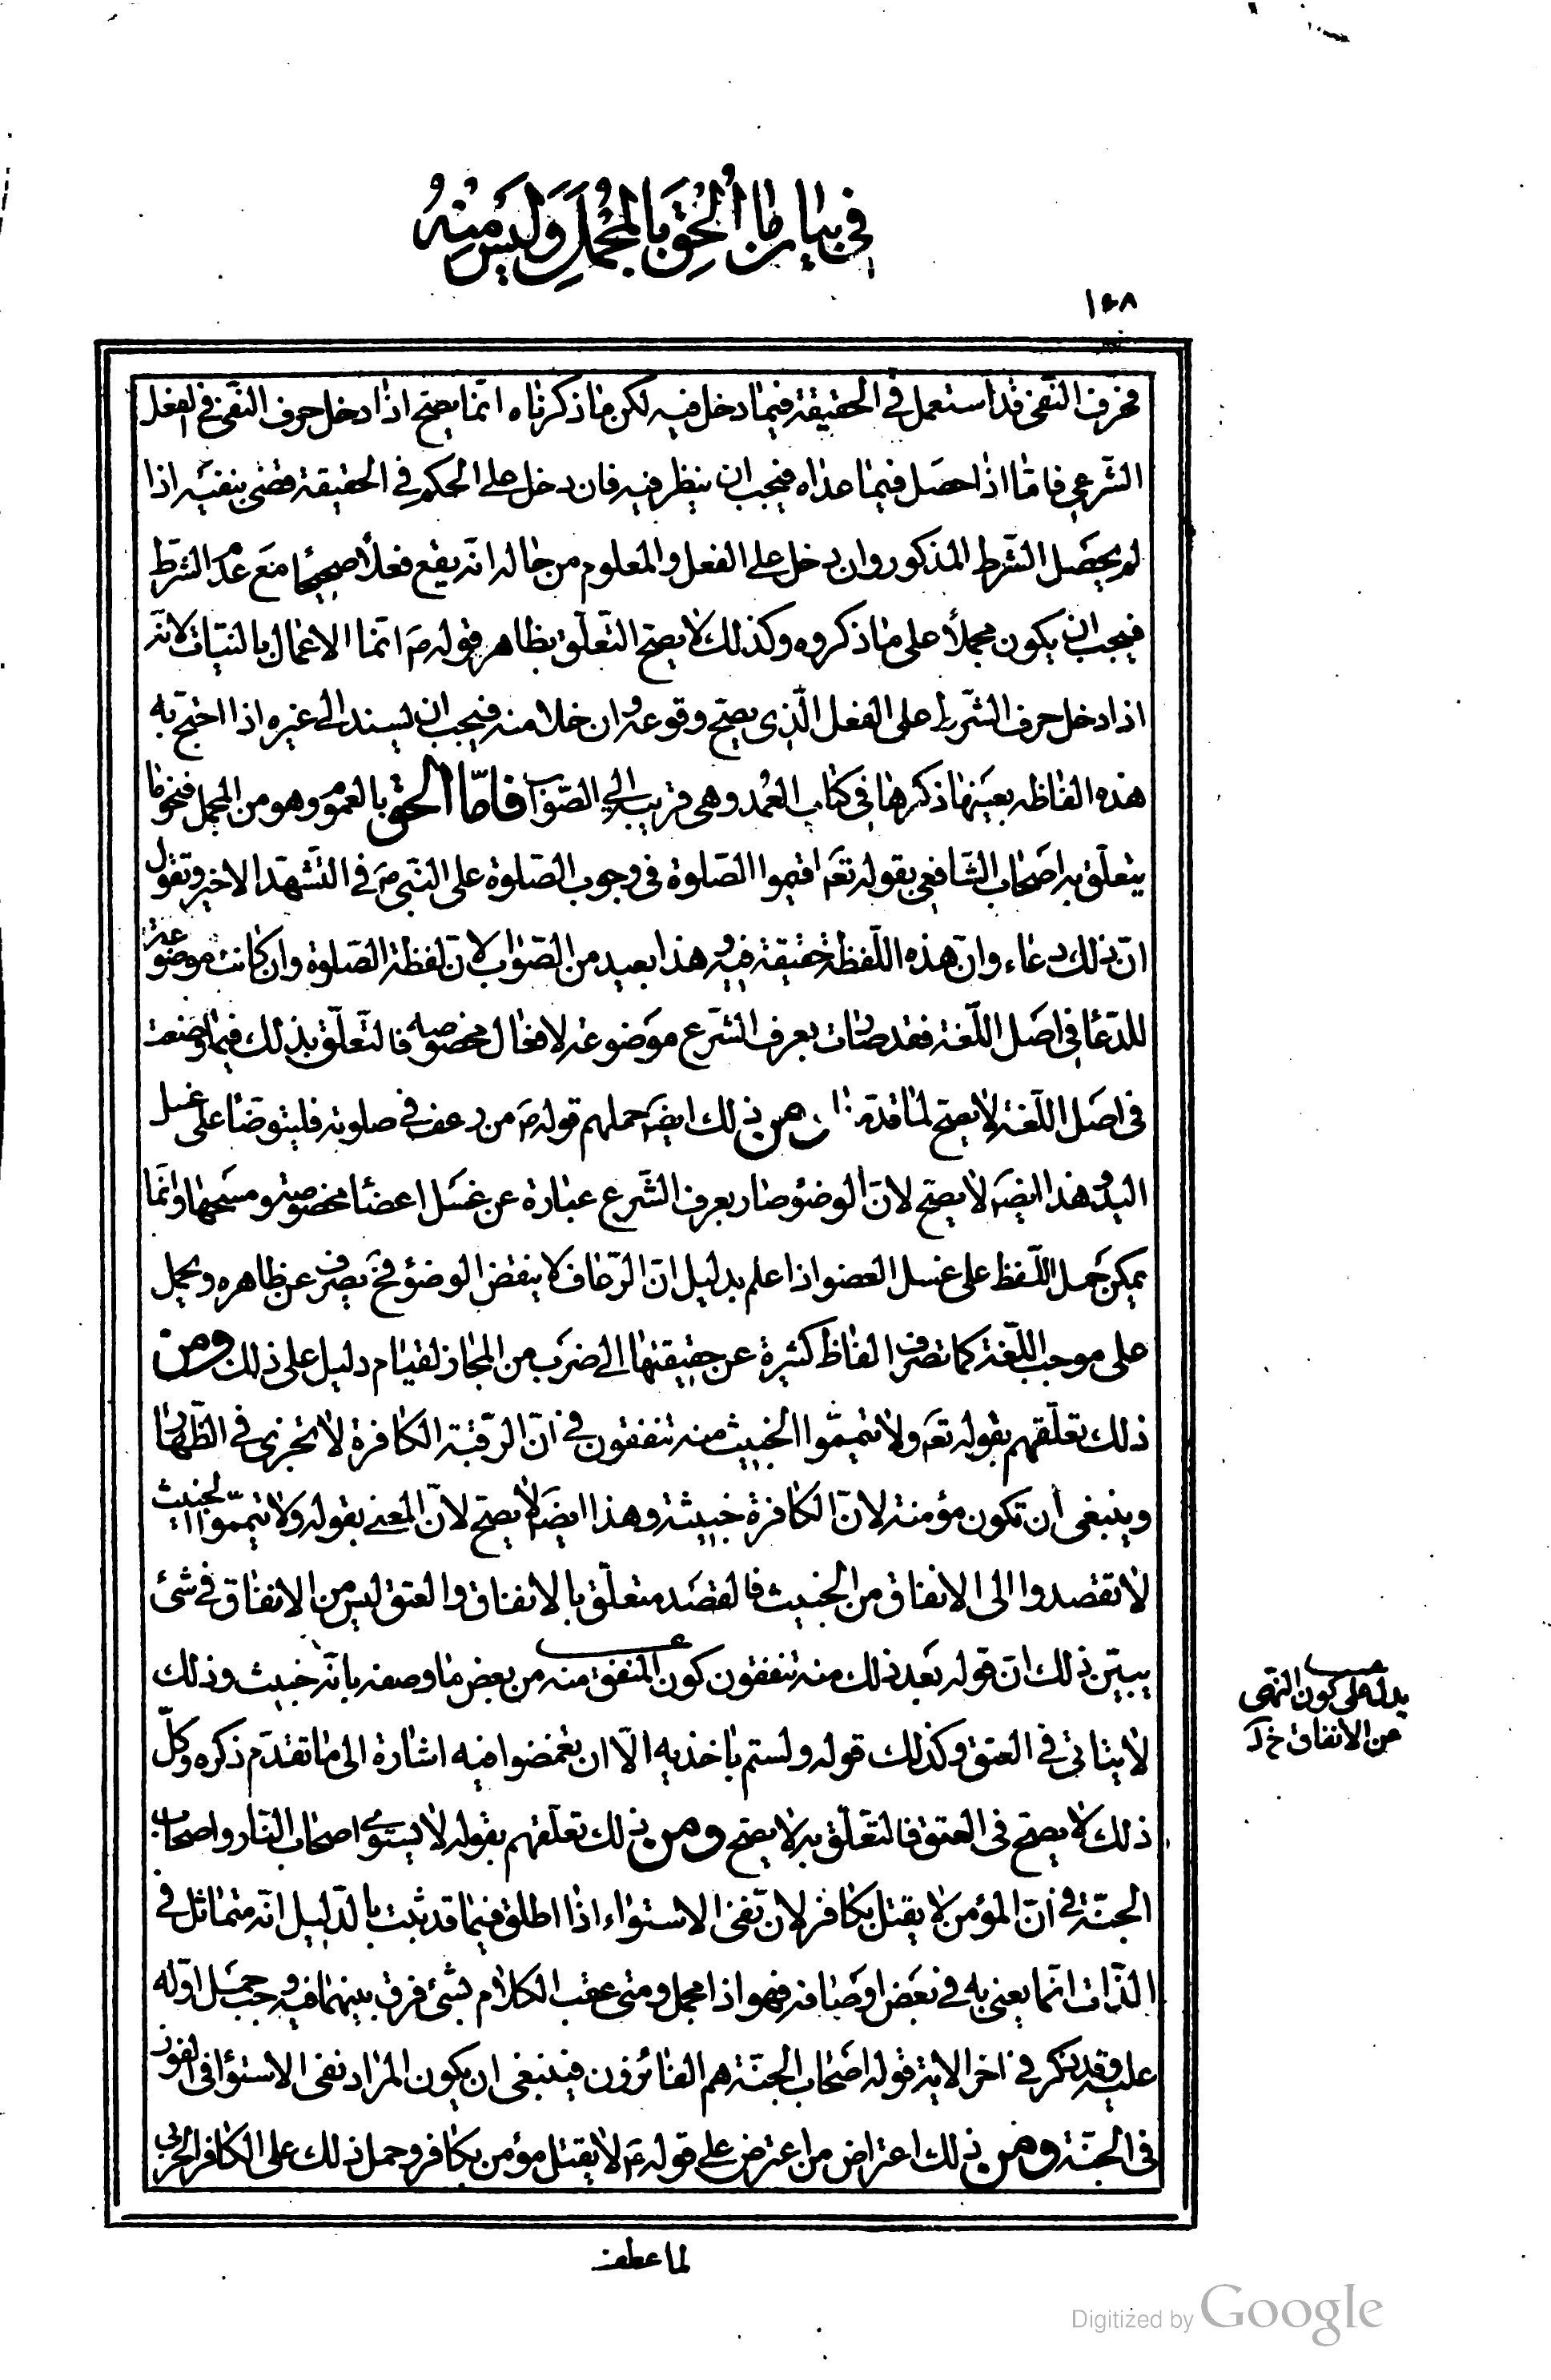 في بيان ما الحق بالمجمل وليس منه
١٤٨
فحرف النفى قد استعمل في الحقيقة فيما دخل فيه لكن ما ذكرناه انما يصح اذا دخل حرف النفى في الفعل
الشرعي فاما اذا حصل فيما عداه فيجب ان ينظر فيه فان دخل على الحكم في الحقيقة قضى بنفيه اذا
لم يحصل الشرط المذكور وان دخل على الفعل والمعلوم من حاله انه يقع فعلاً صحيحا مع عدم الشرط
فيجب ان يكون مجملاً على ما ذكروه وكذلك لا يصح التعلق بظاهر قوله ص انما الاعمال بالنيات لانه
اذا دخل حرف الشرط على الفعل الذى يصح وقوعه وان خلا منه فيجب ان يسند الى غيره اذا احتج به
هذه الفاظه بعينها ذكرها في كتاب العمد وهى قريب الى الصواب فامّا الحق بالعموم وهو من المجمل فنحو ما
يتعلق به اصحاب الشافعي بقوله تعم اقيموا الصلوة في وجوب الصلوة على النبى ص في التشهد الاخير وتقول
ان ذلك دعاء وان هذه اللفظة حقيقة فيه وهذا بعيد من الصواب لان لفظة الصلوة وان كانت موضوعة
للدعا في اصل اللغة فقد صارت بعرف الشرع موضوعة لافعال مخصوصه فالتعلق بذلك فيما وضعت
في اصل اللغة لا يصح لما قدمنا ومن ذلك ايضَ حملهم قوله ص من رعف في صلوته فليتوضا على غسل
اليد وهذا ايضَ لا يصح لان الوضوء صار بعرف الشرع عبارة عن غسل اعضا مخصوصة ومسحها وانما
يمكن حمل اللفظ على غسل العضو اذا علم بدليل ان الرعاف لا ينقض الوضوء فح يصرف عن ظاهره ويحمل
على موجب اللغة كما تصرف الفاظ كثيرة عن حقيقتها الى ضرب من المجاز لقيام دليل على ذلك ومن
ذلك تعلقهم بقوله تعم ولا تيمموا الخبيث منه تنفقون في ان الرقبة الكافرة لا تجزى في الظهار
وينبغى ان تكون مؤمنة لان الكافرة خبيثة وهذا ايضَ لا يصح لان المعنى بقوله ولا تيمموا الخبيث
لا تقصدوا الى الانفاق من الخبيث فالقصد متعلق بالانفاق والعتق ليس من الانفاق في شئ
يبين ذلك ان قوله بعد ذلك منه تنفقون كون المنفق منه من بعض ما وصفه بانه خبيث وذلك
لا يتاتى في العتق وكذلك قوله ولستم باخذيه الا ان تغمضوا فيه اشارة الى ما تقدم ذكره وكل
ذلك لا يصح في العتق فالتعلق به لا يصح ومن ذلك تعلقهم بقوله لا يستوى اصحاب النار واصحاب
الجنة في ان المؤمن لا يقتل بكافر لان نفى الاستواء اذا اطلق فيما قد ثبت بالدليل انه متماثل في
الذات انما يعنى به في بعض اوصافه فهو اذا مجمل ومتى عقب الكلام بشئ فرق بينهما فيه وجب حمل اوله
عليه وقد ذكر في اخر الاية قوله اصحاب الجنة هم الفائزون فينبغى ان يكون المراد نفى الاستوا في الفوز
في الجنة ومن ذلك اعتراض من اعترض على قوله ص لا يقتل مؤمن بكافر وحمل ذلك على الكافر الحربى
يدل على كون النهى
عن الانفاق خ ل
لما عطف
Digitized by Google